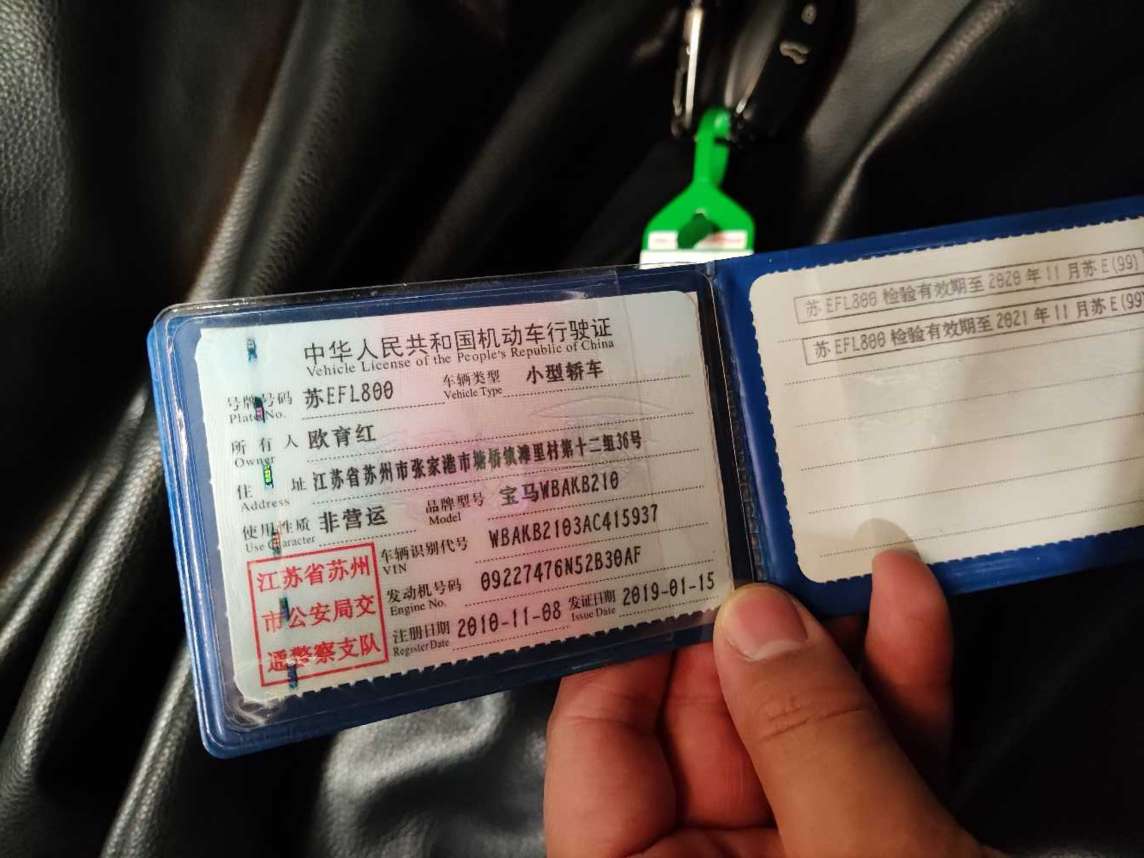 中华人民共和国机动车行驶证
Vehicle License of the People's Republic of China
号牌号码 苏EFL800 车辆类型 小型轿车
Plate No. Vehicle Type
所有人 欧育红
Owner
住址 江苏省苏州市张家港市塘桥镇滩里村第十二组36号
Address
使用性质 非营运 品牌型号 宝马WBAKB210
Use Character Model
车辆识别代号 WBAKB2103AC415937
VIN
发动机号码 09227476N52B30AF
Engine No.
注册日期 2010-11-08 发证日期 2019-01-15
Register Date Issue Date
江苏省苏州
市公安局交
通警察支队
苏EFL800检验有效期至2020年11月苏E(99)
苏EFL800检验有效期至2021年11月苏E(99